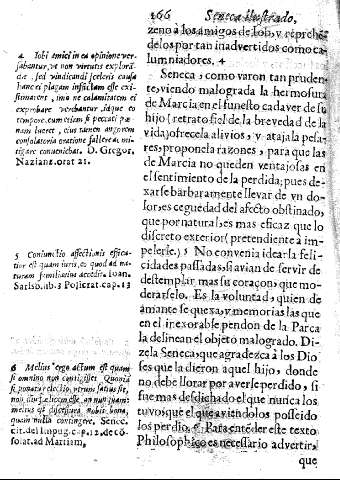 166 Seneca ilustrado,
zeno à los amigos de Iob, y reprehé
delos por tan inadvertidos como ca-
lumniadores. 4
Seneca, como varon tan pruden-
te, viendo malograda la hermosura
de Marcia en el funesto cadaver de su
hijo (retrato fiel de la brevedad de la
vida) ofrecela alivios, y atajala pesa-
res, propone la razones, para que las
de Marcia no queden ventajosas en
el sentimiento de la perdida; pues de-
xarse bàrbaramente llevar de vn do-
lor, es ceguedad del afecto obstinado,
que por natural, es mas eficaz que lo
discreto exterior (pretendiente à im-
pelerle.) 5 No convenia idearla feli-
cidades passadas, si avian de servir de
destemplar mas su coraçon, que mo-
derarselo. Es la voluntad, quien de
amante se quexa, y memorias las que
en el irexorable pendon de la Parca
la delinean el objeto malogrado. Di-
zela Seneca, que agradezca à los Dio
ses que la dieron aquel hijo, donde
no debe llorar por averse perdido, si
fue mas desdichado el que nunca los
tuvo, que el que aviendolos posseido
los perdio. 6 Para entender este texto
Philosophico es necessario advertir,
que
4 Iobi amici in ea opinione ver-
sabantur, vt non virtutis explorā-
dæ, sed vindicandi sceleris causa
hanc ei plagam inflictam esse exi-
stimarent, imo ne calamitatem ei
exprobare verebantur, idque eo
tempore, cum etiam si peccati pœ-
nam lueret, eius tamen angorem
consolatoria oratione fallere ac mi-
tigare conveniebat. D. Gregor.
Nazianz. orat 21.
5 Coniunctio affectionis effica-
tior est quam iuris, eo quod ad na-
turam familiarius accedit. Ioan.
Sarisb. lib. 3 Policrat. cap. 13
6 Melius ergo actum est quam
si omnino non contigisset Quonia
si ponatur electio, vtrum satius sit,
non diu felicem esse, an nunquam:
melius est discessura nobis bona,
quàm nulla contingere. Senec.
cit. del Impug. cap. 12. de cō-
solat. ad Martiam,